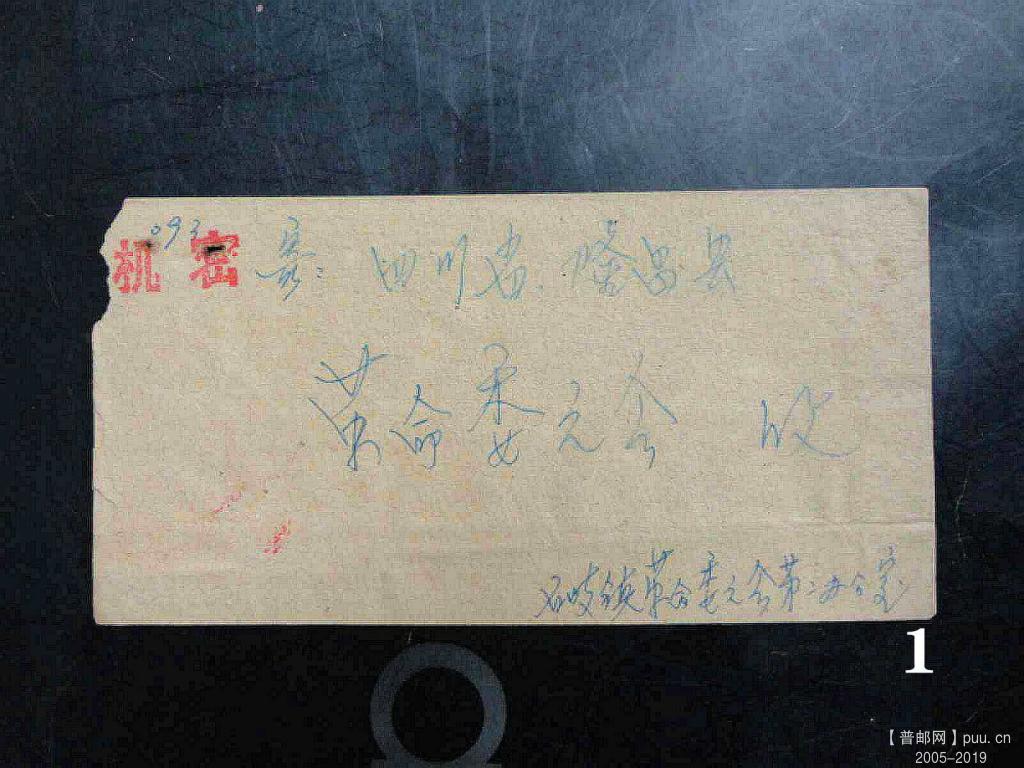 093
机密 寄: 四川省. 隆昌县
革命委员会 收
石岐镇革命委员会第二办公室
1
【普邮网】puu.cn
2005-2019